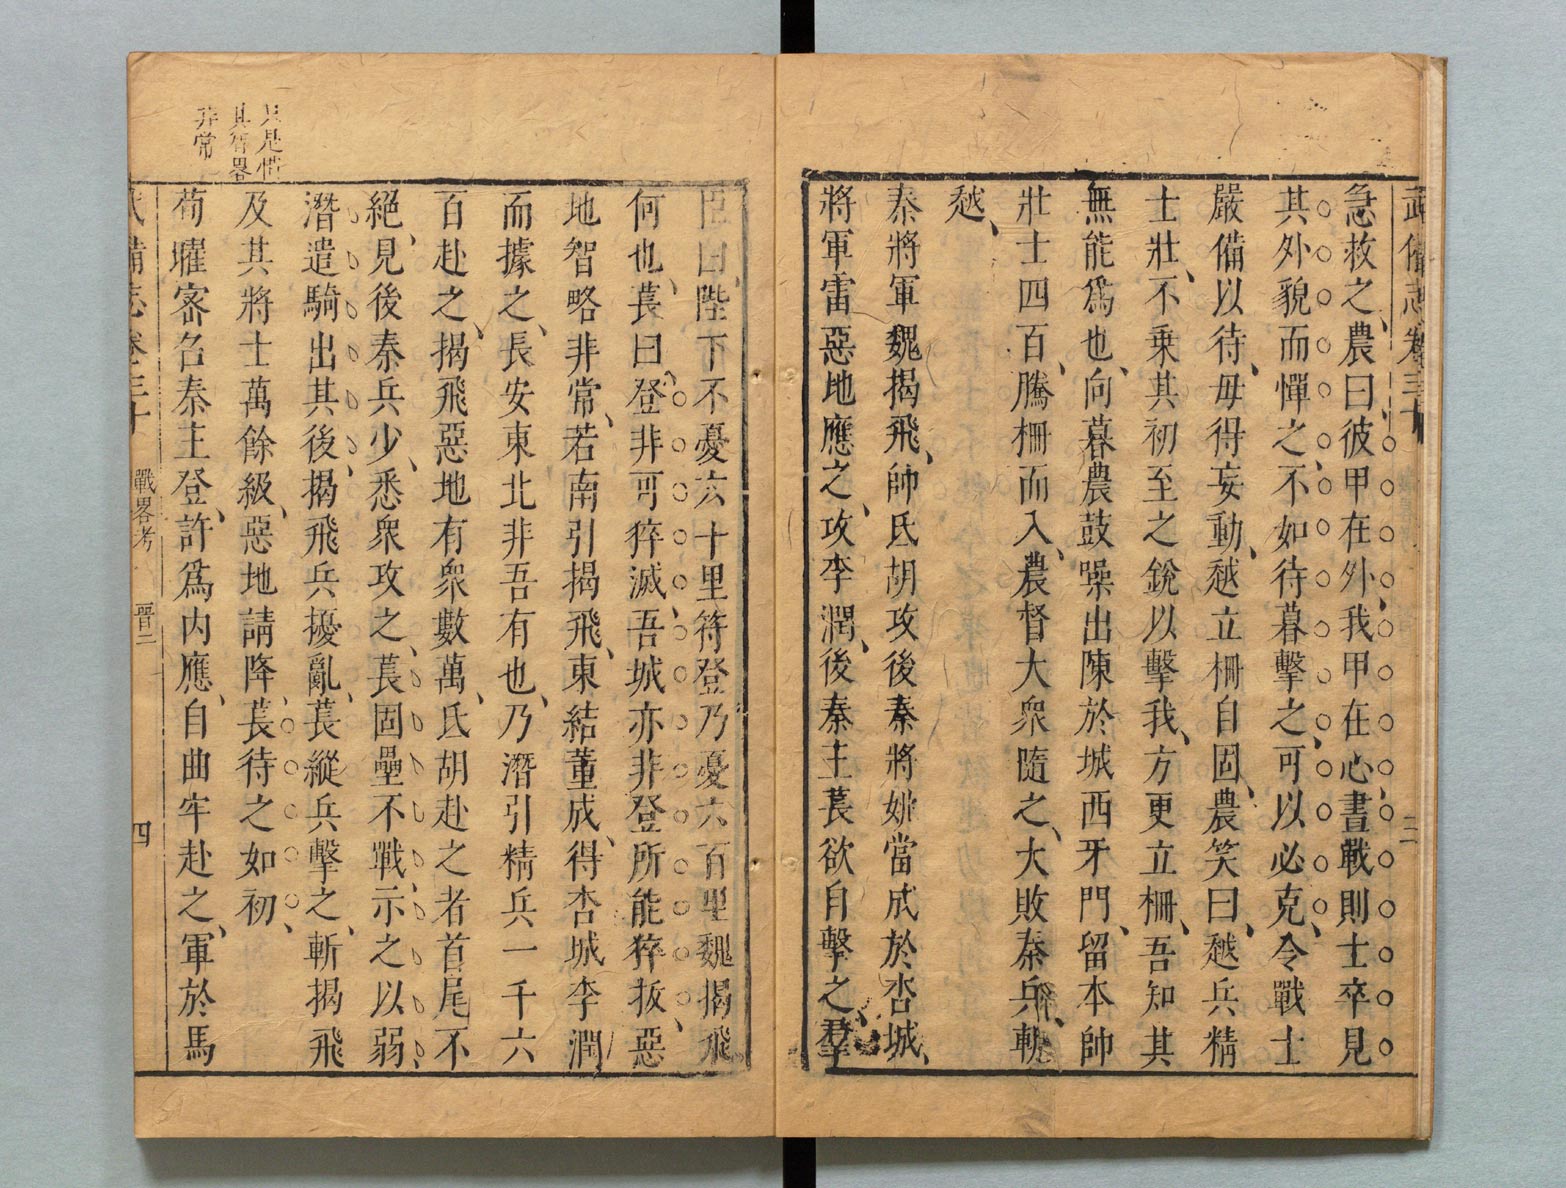 武備志卷三十
二
急救之農曰彼甲在外我甲在心晝戰則士卒見
其外貌而憚之不如待暮擊之可以必克令戰士
嚴備以待毋得妄動越立柵自固農笑曰越兵精
士壯不乗其初至之銳以擊我方更立柵吾知其
無能爲也向暮農鼓噪出陳於城西牙門留本帥
壯士四百騰柵而入農督大衆隨之大敗秦兵斬
越
秦將軍魏揭飛帥氐胡攻後秦將姚當成於杏城
將軍雷惡地應之攻李潤後秦主萇欲自擊之羣
臣曰陛下不憂六十里符登乃憂六百里魏揭飛
何也萇曰登非可猝滅吾城亦非登所能猝拔惡
地智略非常若南引揭飛東結董成得杏城李潤
而據之長安東北非吾有也乃潛引精兵一千六
百赴之揭飛惡地有衆數萬氐胡赴之者首尾不
絕見後秦兵少悉衆攻之萇固壘不戰示之以弱
潛遣騎出其後揭飛兵擾亂萇縱兵擊之斬揭飛
及其將士萬餘級惡地請降萇待之如初
苟曜宻名秦主登許爲内應自曲牢赴之軍於馬
武備志卷三十
戰畧考
晉二
四
只是惜
其智畧
非常